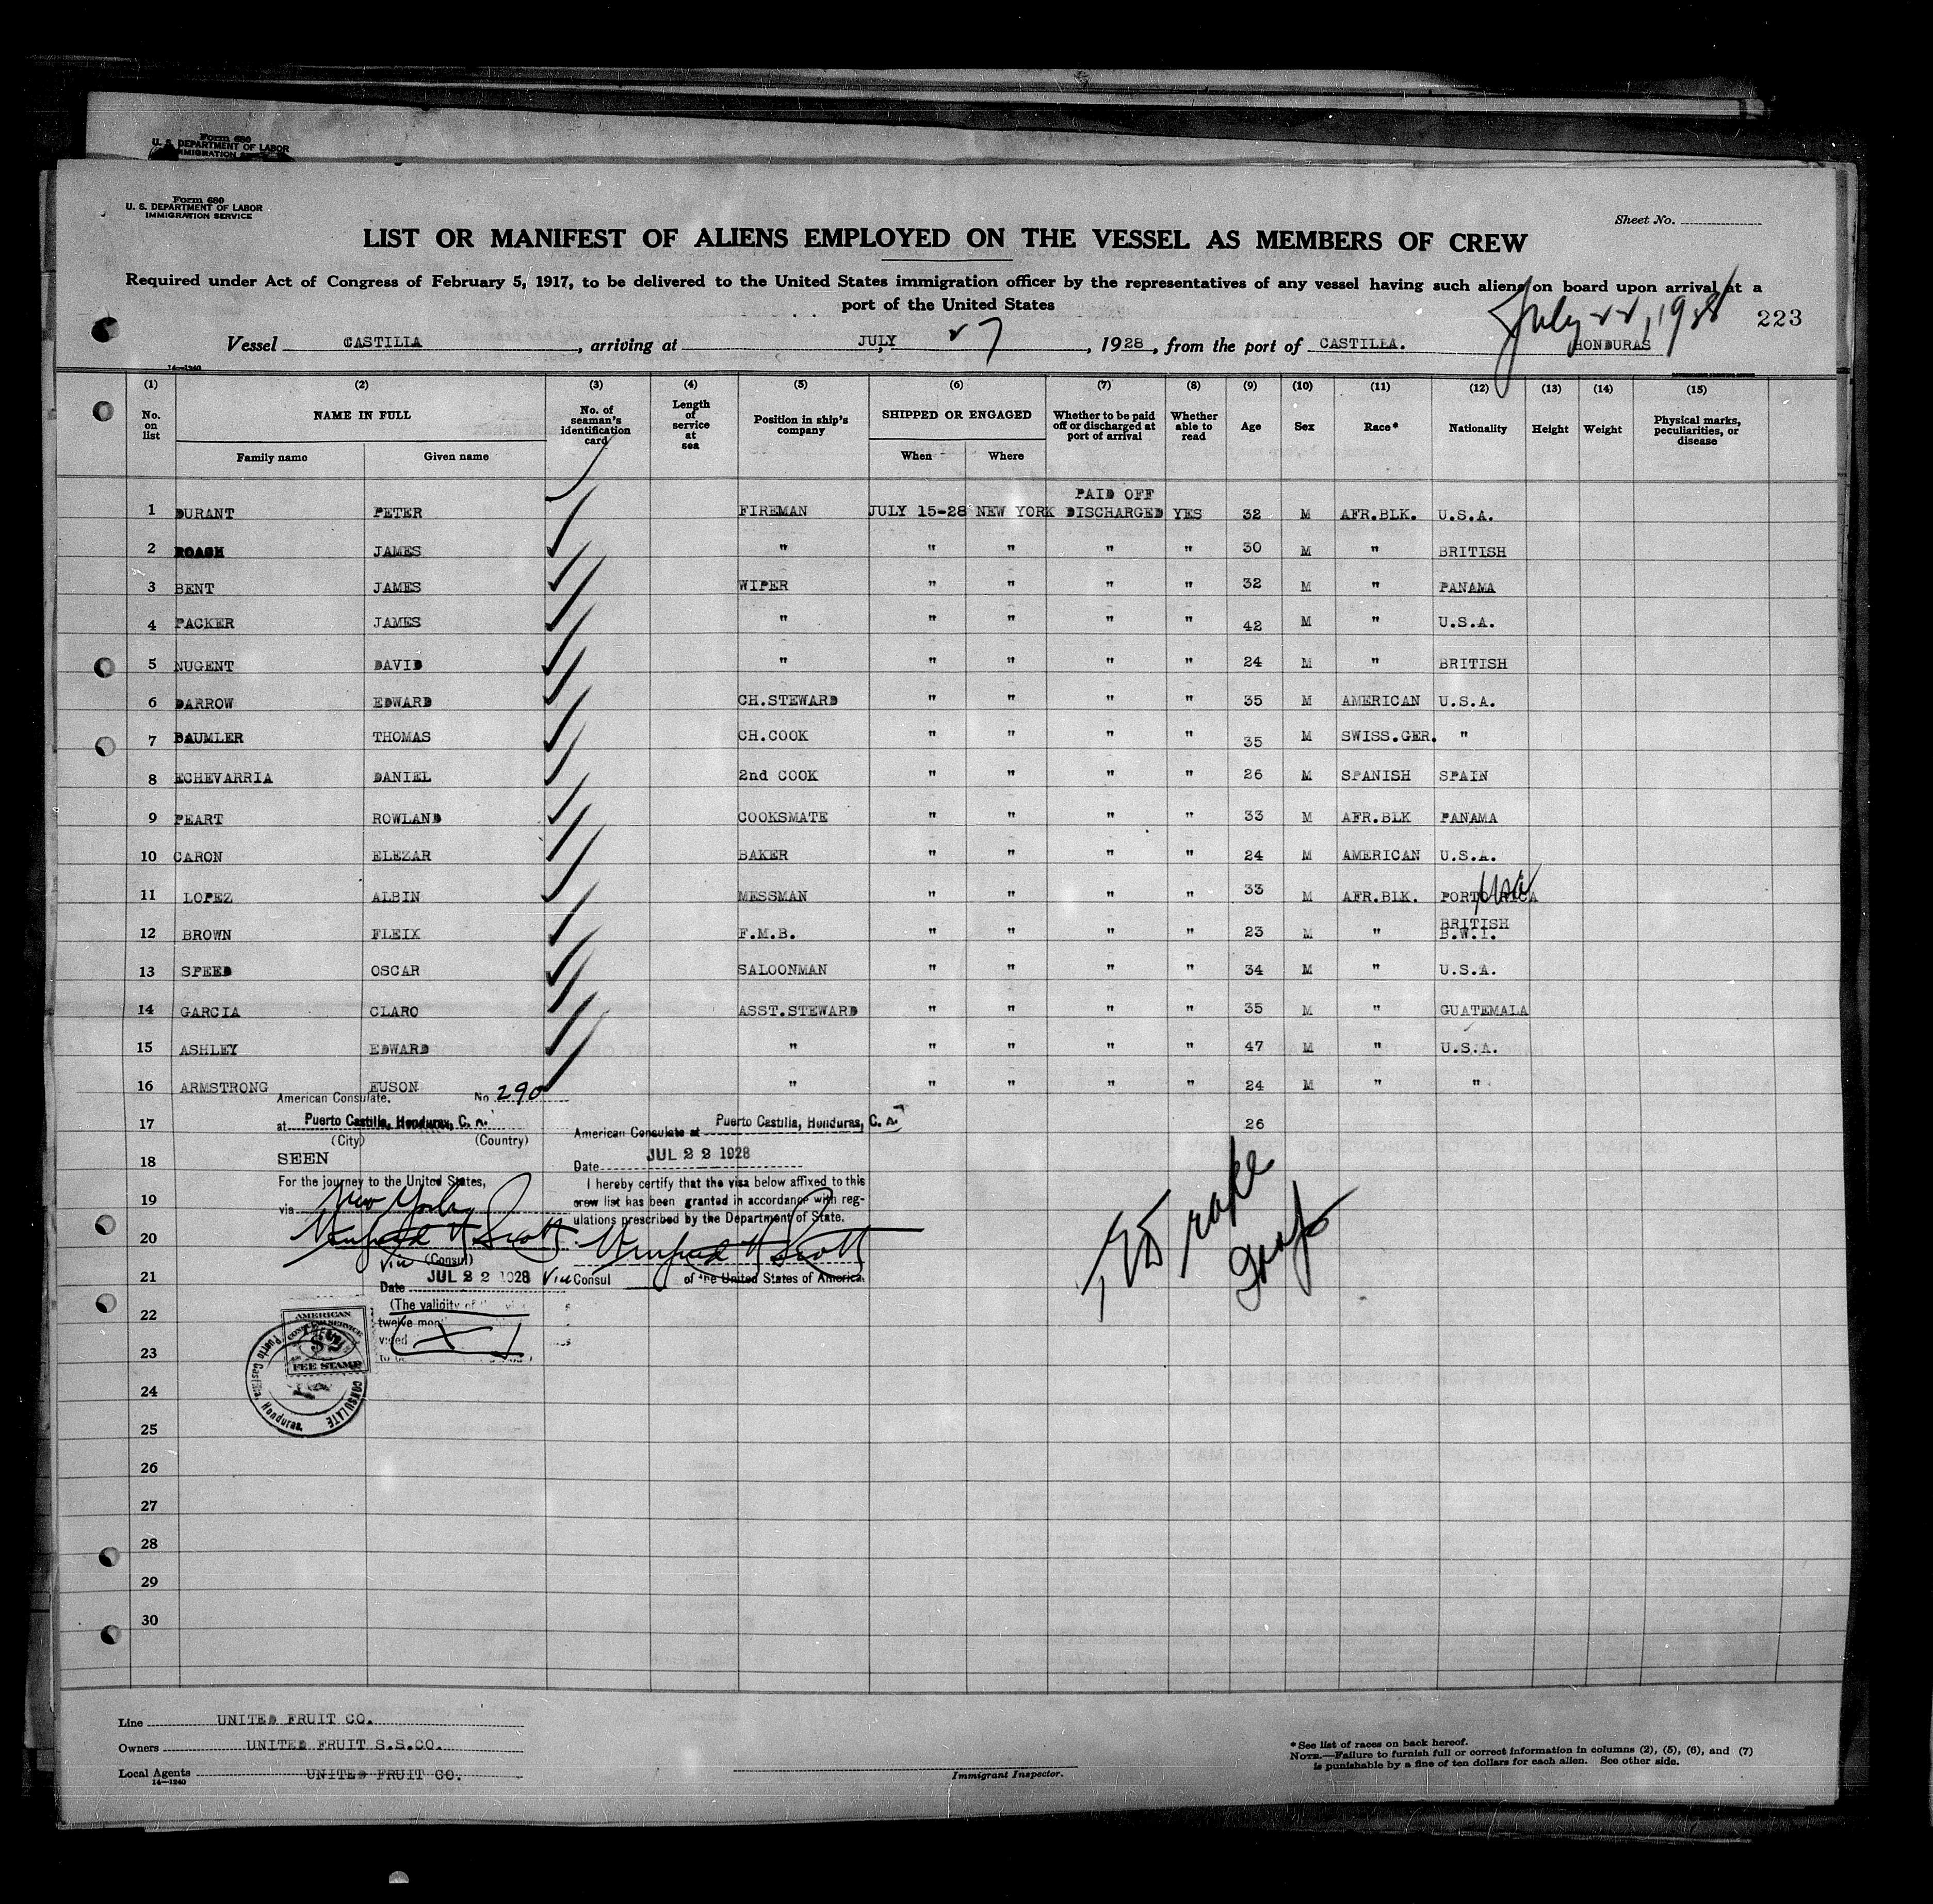 Form 680
U. S. DEPARTMENT OF LABOR
IMMIGRATION
Form 680
U. S. DEPARTMENT OF LABOR
IMMIGRATION SERVICE
Sheet No.
LIST OR MANIFEST OF ALIENS EMPLOYED ON THE VESSEL AS MEMBERS OF CREW
Required under Act of Congress of February 5, 1917, to be delivered to the United States immigration officer by the representatives of any vessel having such aliens on board upon arrival at a
port of the United States
July 22, 1928 223
Vessel CASTILLA, arriving at JULY 27, 1928, from the port of CASTILLA. HONDURAS
14—1240
(1) (2) (3) (4) (5) (6) (7) (8) (9) (10) (11) (12) (13) (14) (15)
No. on list NAME IN FULL No. of seaman's identification card Length of service at sea Position in ship's company SHIPPED OR ENGAGED Whether to be paid off or discharged at port of arrival Whether able to read Age Sex Race* Nationality Height Weight Physical marks, peculiarities, or disease
Family name Given name When Where
PAID OFF
1 DURANT PETER FIREMAN JULY 15-28 NEW YORK DISCHARGED YES 32 M AFR.BLK. U.S.A.
2 ROACH JAMES " " " " " 30 M " BRITISH
3 BENT JAMES WIPER " " " " 32 M " PANAMA
4 PACKER JAMES " " " " " 42 M " U.S.A.
5 NUGENT DAVID " " " " " 24 M " BRITISH
6 DARROW EDWARD CH.STEWARD " " " " 35 M AMERICAN U.S.A.
7 BAUMLER THOMAS CH.COOK " " " " 35 M SWISS.GER. "
8 ECHEVARRIA DANIEL 2nd COOK " " " " 26 M SPANISH SPAIN
9 PEART ROWLAND COOKSMATE " " " " 33 M AFR.BLK PANAMA
10 CARON ELEZAR BAKER " " " " 24 M AMERICAN U.S.A.
11 LOPEZ ALBIN MESSMAN " " " " 33 M AFR.BLK. PORTO RICA USA
12 BROWN FLEIX F.M.B. " " " " 23 M " BRITISH B.W.I.
13 SPEED OSCAR SALOONMAN " " " " 34 M " U.S.A.
14 GARCIA CLARO ASST.STEWARD " " " " 35 M " GUATEMALA
15 ASHLEY EDWARD " " " " " 47 M " U.S.A.
16 ARMSTRONG EUSON " " " " " 24 M " "
American Consulate. No. 290
17 at Puerto Castilla, Honduras, C. A. American Consulate at Puerto Castilla, Honduras, C. A. 26
(City) (Country)
18 SEEN Date JUL 22 1928
For the journey to the United States, I hereby certify that the visa below affixed to this
19 via New York crew list has been granted in accordance with reg-
ulations prescribed by the Department of State.
20 Winfred H Scott Winfred H Scott
Vice (Consul)
21 Date JUL 22 1928 Vice Consul of the United States of America.
22 (The validity of
twelve
23
24
25
26
27
28
29
30
AMERICAN
CONSULAR SERVICE
FEE STAMP
CONSULATE
Puerto Castilla, Honduras.
Line UNITED FRUIT CO.
Owners UNITED FRUIT S.S.CO.
Local Agents UNITED FRUIT CO.
14—1240
Immigrant Inspector.
*See list of races on back hereof.
NOTE.—Failure to furnish full or correct information in columns (2), (5), (6), and (7)
is punishable by a fine of ten dollars for each alien. See other side.